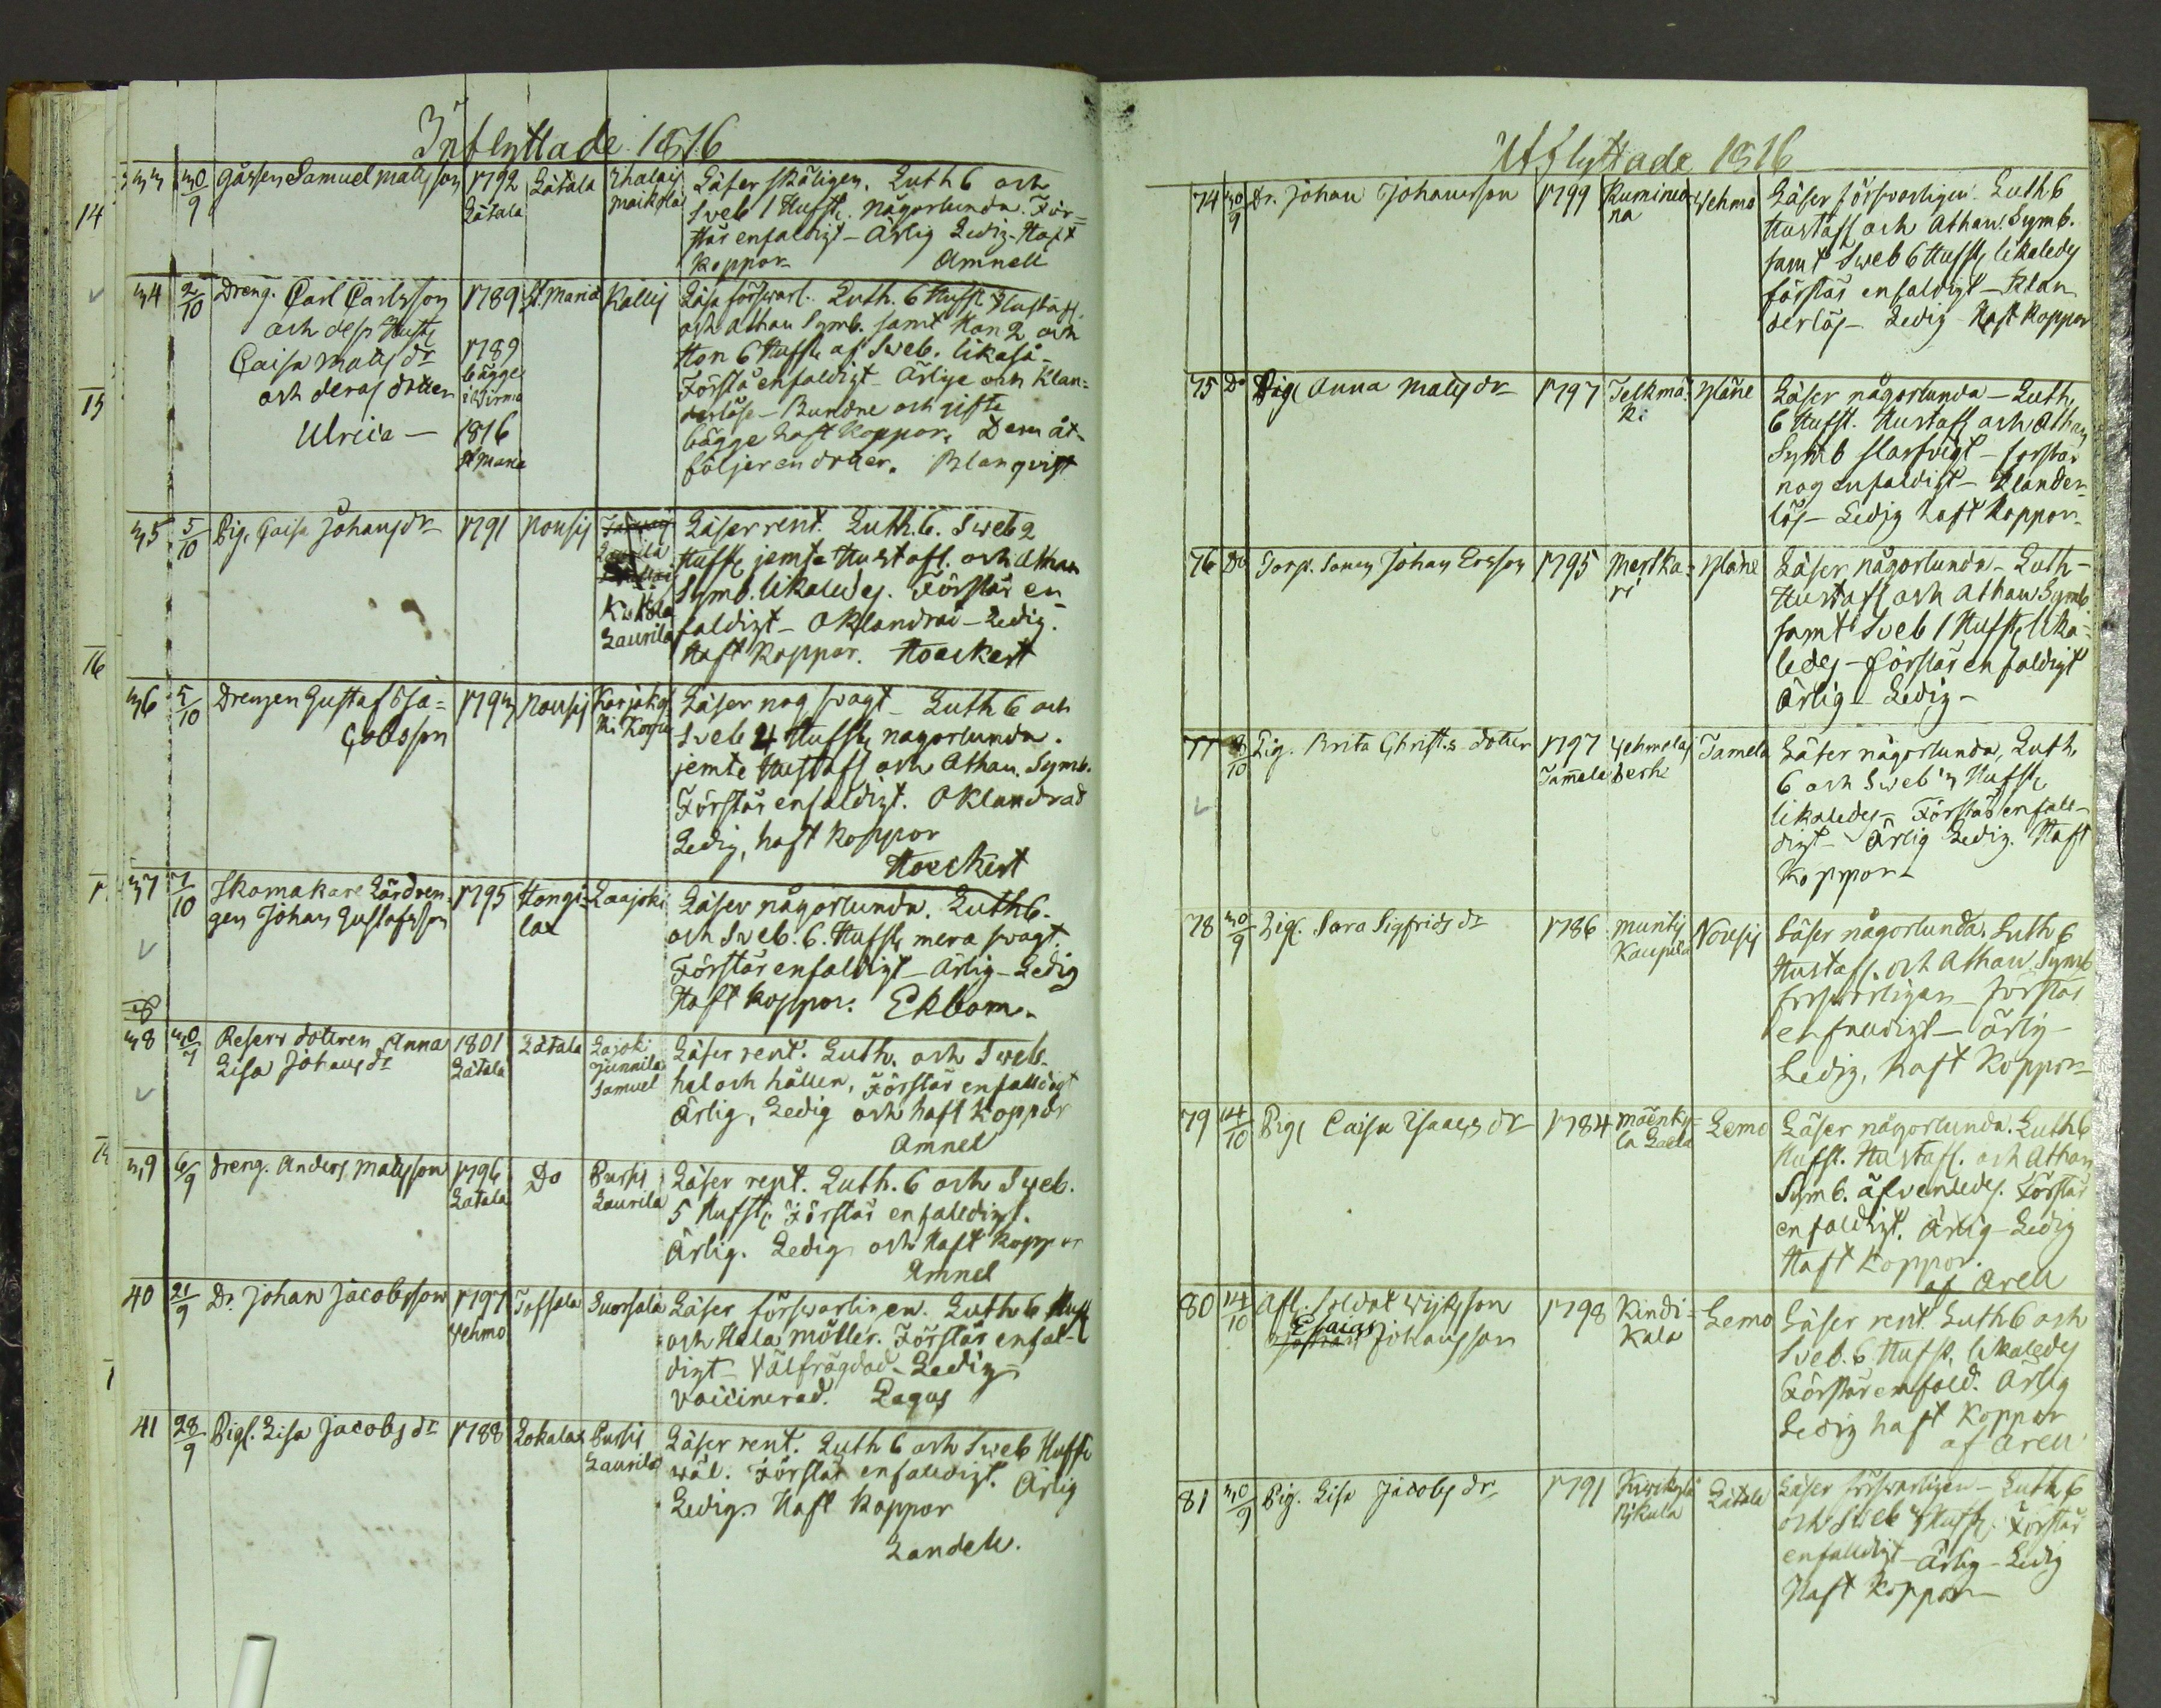 Inflyttade 1816
33 30/9 Gåssen Samuel Matsson 1792 Låtala Låtala Ehalais Maikola
Läser skäligen. Luth 6 och
Sveb 1 Hufst. Någorlunda. För=
står enfaldigt - Ärlig Ledig - Haft
Koppor Amnell
34 2/10 Dreng. Carl Carlsson 1789 St. Maria Kallis
och dess Hust
Caisa Mats dr 1789 bägge i Wirmo
och deras dotter
Ulrica - 1816 St Maria
Läsa förswarl. Luth. 6 Hufst Hustafl.
och Athan Symb. samt Han 2 och
Hon 6 Hufst af Sveb. likaså -
Förstå enfaldigt - Ärlige och Klan=
derlöse - Bundne och gifte
bägge haft Koppor. Dem åt=
följer en dotter. Blanqvist
35 5/10 Pig. Caisa Johans dr 1791 Nousis Laurila
Läser rent. Luth. 6. Sveb 2
Hufst jemte Hustafl. och Athan
Symb. likaledes. Förstår en=
faldigt - Oklandrad - Ledig.
Haft Koppor. Hoeckert
36 5/10 Drengen Gustaf Ja=
cobsson 1793 Nousis
Läser nog svagt - Luth 6 och
Sveb 4 Hufst någorlunda.
jemte Hustafl och Athan. Symb.
Förstår enfaldigt. Oklandrad
Ledig, haft Koppor
Hoeckert
37 7/10 Skomakare Lärdren=
gen Johan Gustafsson 1795 Hongi=
lax Laajoki
Läser någorlunda. Luth 6.
och Sveb. 6. Hufst mera svagt.
Förstår enfaldigt - Ärlig - Ledig
Haft Koppor. Ekbom.
38 30/7 Reserv dottren Anna
Lisa Johans dr 1801 Låtala Låtala Lajoki Junnila Samuel
Läser rent. Luth. och Sveb.
hel och hållen, Förstår enfalldigt
Ärlig, Ledig och haft Koppor
Amnel
39 6/9 Dreng. Anders Matsson 1796 Låtala Do Pursis Laurila
Läser rent. Luth. 6 och Sveb.
5 Hufst. Förstår enfalldigt.
Ärlig. Ledig och Haft Koppor
Amnel
40 21/9 Dr. Johan Jacobsson 1797 Wehmo Tofsala Suorsala
Läser förswarligen. Luth 6 Hufst
och Hela Möller. Förstår enfal=
digt - Välfrägdad - Ledig
vaccinerad. Lagus
41 28/9 Pigl. Lisa Jacobs dr 1788 Lokalax Pursis Laurila
Läser rent. Luth 6 och Sveb Hufst
wäl. Förstår enfalldigt. Ärlig
Ledig. Haft Koppor
Landell.
Utflyttade 1816
74 30/9 Dr. Johan Johansson 1799 Wehmo
Läser förswarligen. Luth 6
Hustafl och Athan. Symb.
samt Sveb 6 Hufst likaledes
förstår enfaldigt - Klan
derlös - Ledig Haft Koppor
75 Do Pigl Anna Mats dr 1797 Telkmä=
ki Mäne
Läser någorlunda - Luth,
6 Hufst. Hustafl och Athan
Symb slarfvigt - förstår
nog enfaldigt - Klander=
lös - Ledig haft Koppor
76 Do Torp. Sonen Johan Ersson 1795
Läser någorlunda - Luth -
Hustafl och Athan Symb.
samt Sveb 1 Hufst lika=
ledes - förstår enfaldigt
Ärlig - Ledig -
77 8/10 Pig. Brita Christ.s dotter 1797 Tamela Tamela
Läser någorlunda, Luth,
6 och Sveb 3 Hufst
likaledes - Förstår enfall=
digt - Ärlig Ledig. Haft
Koppor -
78 30/9 Pigl. Sara Sigfrids dr 1786 Muntis Kaupila Nousis
Läser någorlunda. Luth 6
Hustafl. och Athan. Symb
förswarligen - förstår
enfaldigt - ärlig -
Ledig, haft Koppor
79 14/10 Pigl Caisa Isaacs dr 1784 Lemo
Läser någorlunda. Luth 6
Hufst. Hustafl. och Athan
Symb. äfvenledes. Förstår
enfaldigt. Ärlig - Ledig
Haft Koppor.
af Arell
80 14/10 Afl. Soldat Wijksson
Esaias Johansson 1798 Kindi=
kala Lemo
Läser rent. Luth 6 och
Sveb. 6 Hufst, likaledes
Förstår enfald. Ärlig
Ledig haft Koppor
af Arell
81 30/9 Pig. Lisa Jacobs dr 1791 Låtala
Läser förswarligen - Luth 6
och Sveb 4 Hufst. Förstår
enfalldigt - Ärlig - Ledig
Haft Koppor -